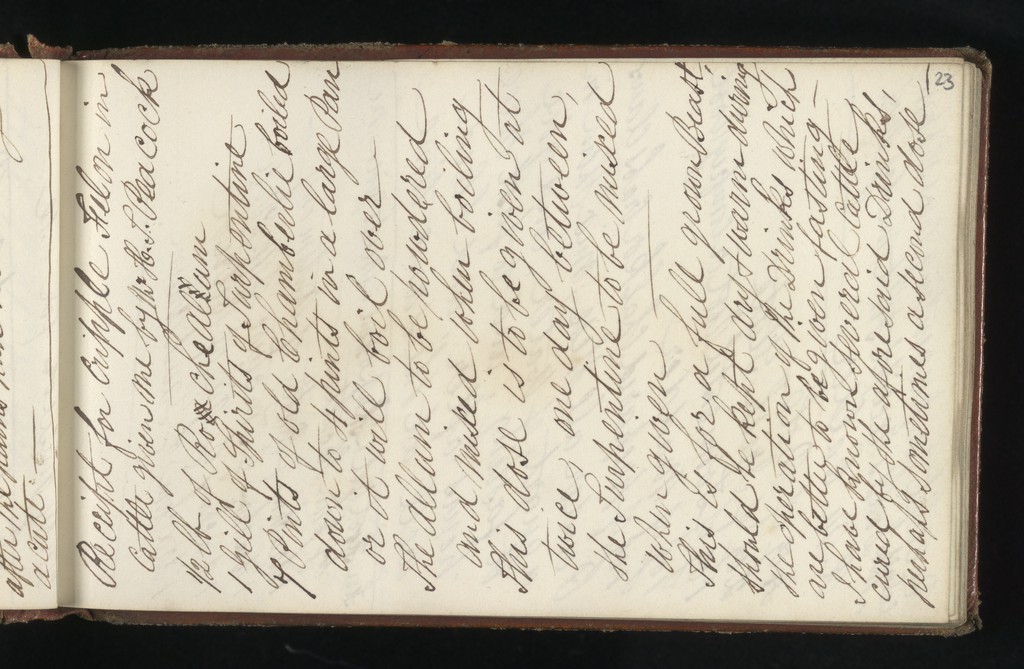 after
a cute
23
Receipt for Cripple Felon in
Cattle given me by Mr. S. Peacock
1/2 lb of Roch Allum
1 gill of Spirits of Turpentine
of Pints of old Chamberlie boiled
down to 4 pints in a large Pan
or it will boil over
The Allum to be powdered
and mixed when boiling
This dose is to be given at
twice, one day between,
the Turpentine to be mixed
when given
This is for a full grown Beast,
should be kept dry & warm during
the operation of the Drinks, which
are better to be given fasting –
I have known several Cattle
cured of the aforesaid Drinks,
perhaps sometimes a second dose